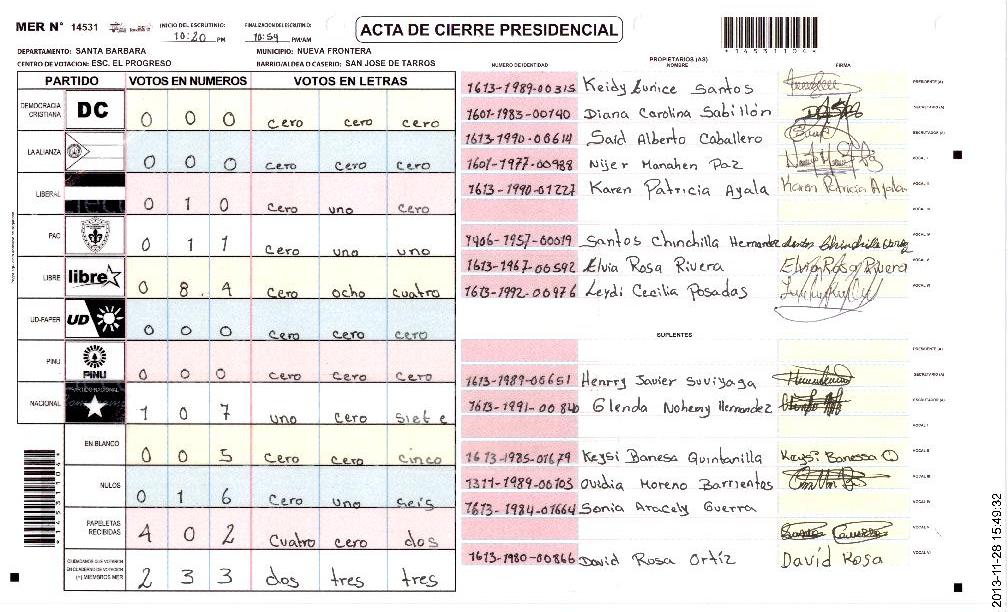 MER N° 14531
INICIO DEL ESCRUTINIO:
10:20 PM
FINALIZACION DEL ESCRUTINIO:
10:54 PM/AM
ACTA DE CIERRE PRESIDENCIAL
*14531104*
DEPARTAMENTO: SANTA BARBARA
MUNICIPIO: NUEVA FRONTERA
CENTRO DE VOTACION: ESC. EL PROGRESO
BARRIO/ALDEA O CASERIO: SAN JOSE DE TARROS
PARTIDO VOTOS EN NUMEROS VOTOS EN LETRAS
DEMOCRACIA CRISTIANA DC 0 0 0 cero cero cero
LA ALIANZA 0 0 0 cero cero cero
LIBERAL 0 1 0 cero uno cero
PAC 0 1 1 cero uno uno
LIBRE libre 0 8 4 cero ocho cuatro
UD-FAPER UD 0 0 0 cero cero cero
PINU PINU 0 0 0 cero cero cero
NACIONAL PARTIDO NACIONAL 1 0 7 uno cero siete
EN BLANCO 0 0 5 cero cero cinco
NULOS 0 1 6 cero uno seis
PAPELETAS RECIBIDAS 4 0 2 cuatro cero dos
CIUDADANOS QUE VOTARON
EN CUADERNO DE VOTACION
(+) MIEMBROS MER 2 3 3 dos tres tres
PROPIETARIOS (AS)
NUMERO DE IDENTIDAD NOMBRE FIRMA
1613-1989-00315 Keidy Eunice Santos PRESIDENTE (A)
1607-1983-00740 Diana Carolina Sabillón SECRETARIO (A)
1613-1990-00614 Said Alberto Caballero ESCRUTADOR (A)
1601-1977-00988 Nijer Manahen Paz VOCAL I
1613-1990-01227 Karen Patricia Ayala Karen Patricia Ayala VOCAL II
VOCAL III
1406-1957-00019 Santos Chinchilla Hernandez VOCAL IV
1613-1967-00592 Elvia Rosa Rivera Elvia Rosa Rivera VOCAL V
1613-1992-00976 Leydi Cecilia Posadas VOCAL VI
SUPLENTES
PRESIDENTE (A)
1613-1989-00651 Henrry Javier Suviyaga SECRETARIO (A)
1613-1991-00840 Glenda Nohemy Hernandez ESCRUTADOR (A)
VOCAL I
1613-1985-01679 Keysi Banesa Quintanilla Keysi Banessa Q VOCAL II
1311-1989-00103 Ovidia Moreno Barrientos VOCAL III
1613-1984-01664 Sonia Aracely Guerra VOCAL IV
VOCAL V
1613-1980-00866 David Rosa Ortíz David Rosa VOCAL VI
*14531104*
2013-11-28 15:49:32